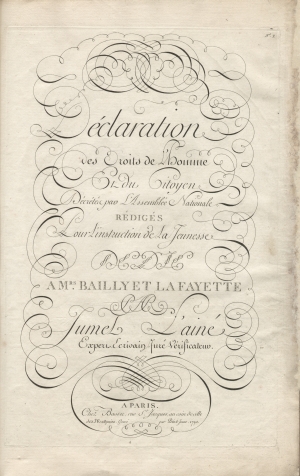 Déclaration
des Droits de l'Homme
Et du Citoyen
Décrétés par l'Assemblée Nationale
RÉDIGÉS
Pour l'instruction de la Jeunesse
DÉDIÉS
A Mrs BAILLY ET LA FAYETTE
PAR
Jumel L'ainé
Expert Ecrivain Juré Vérificateur.
A PARIS,
Chés
rue St Jacques au coin de celle
des Mathurins